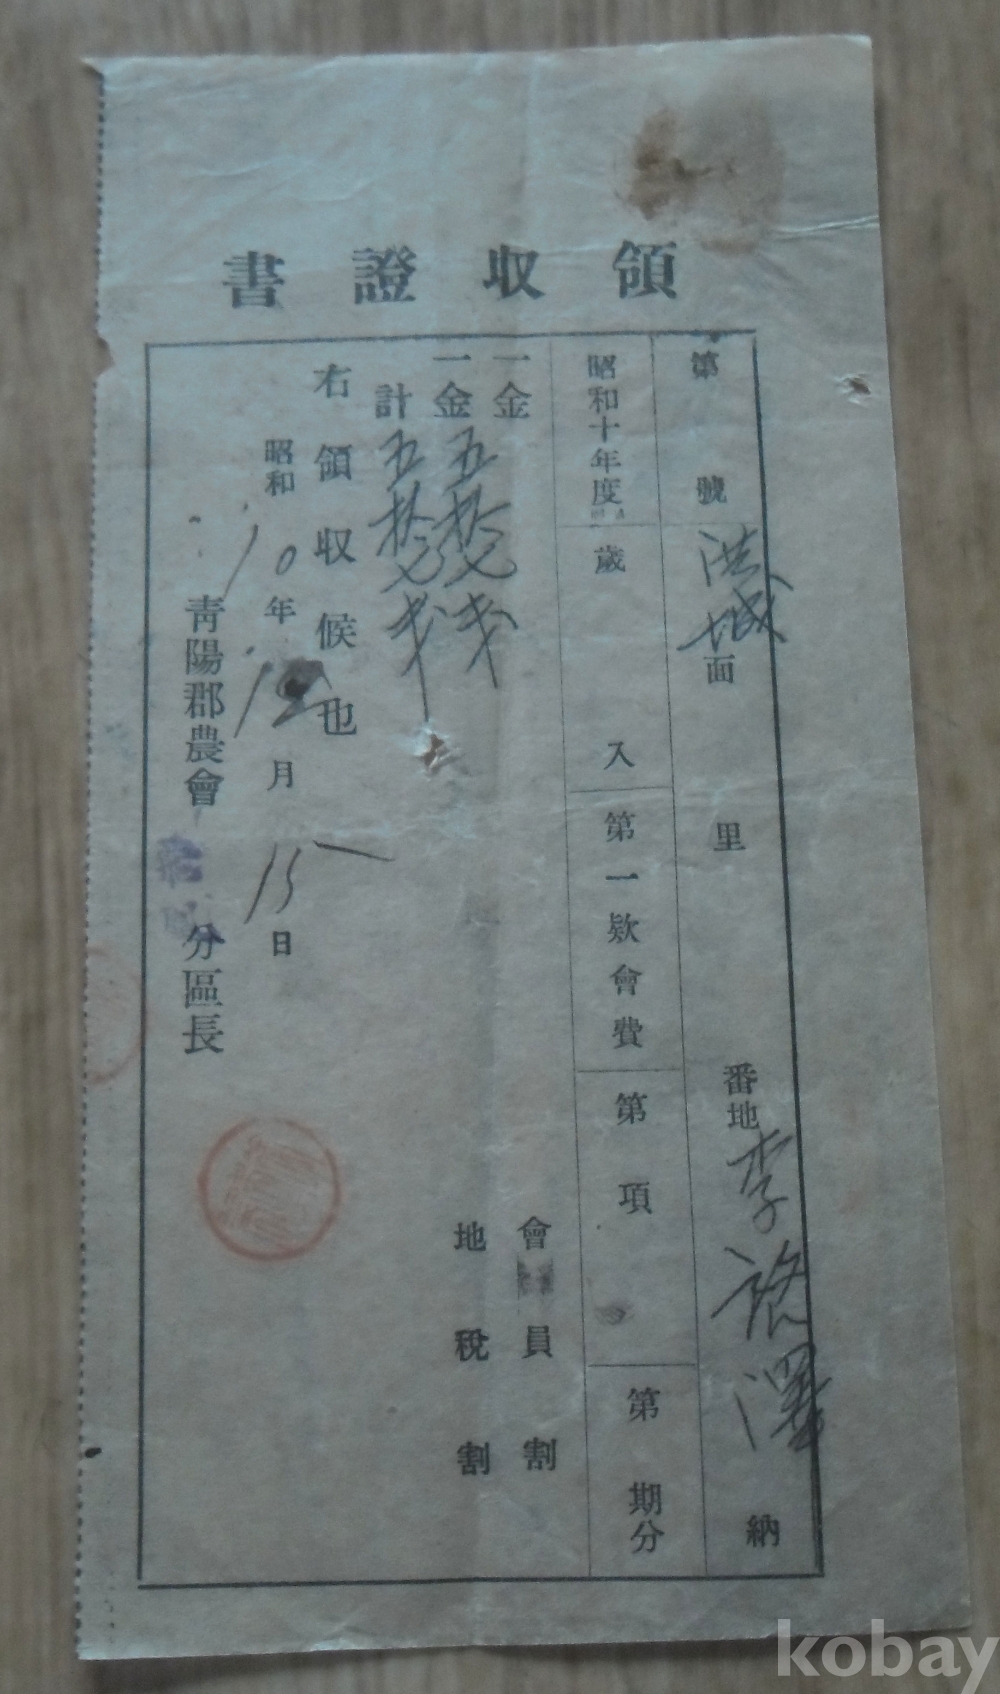 領收證書
第 號 洪城面 里 番地 李 澤 納
昭和十年度 歲入 第一欵會費 第 項 第 期分
一金 會員割
一金五拾七戋 地稅割
計五拾七戋
右領收候也
昭和10年12月15日
靑陽郡農會 分區長
kobay